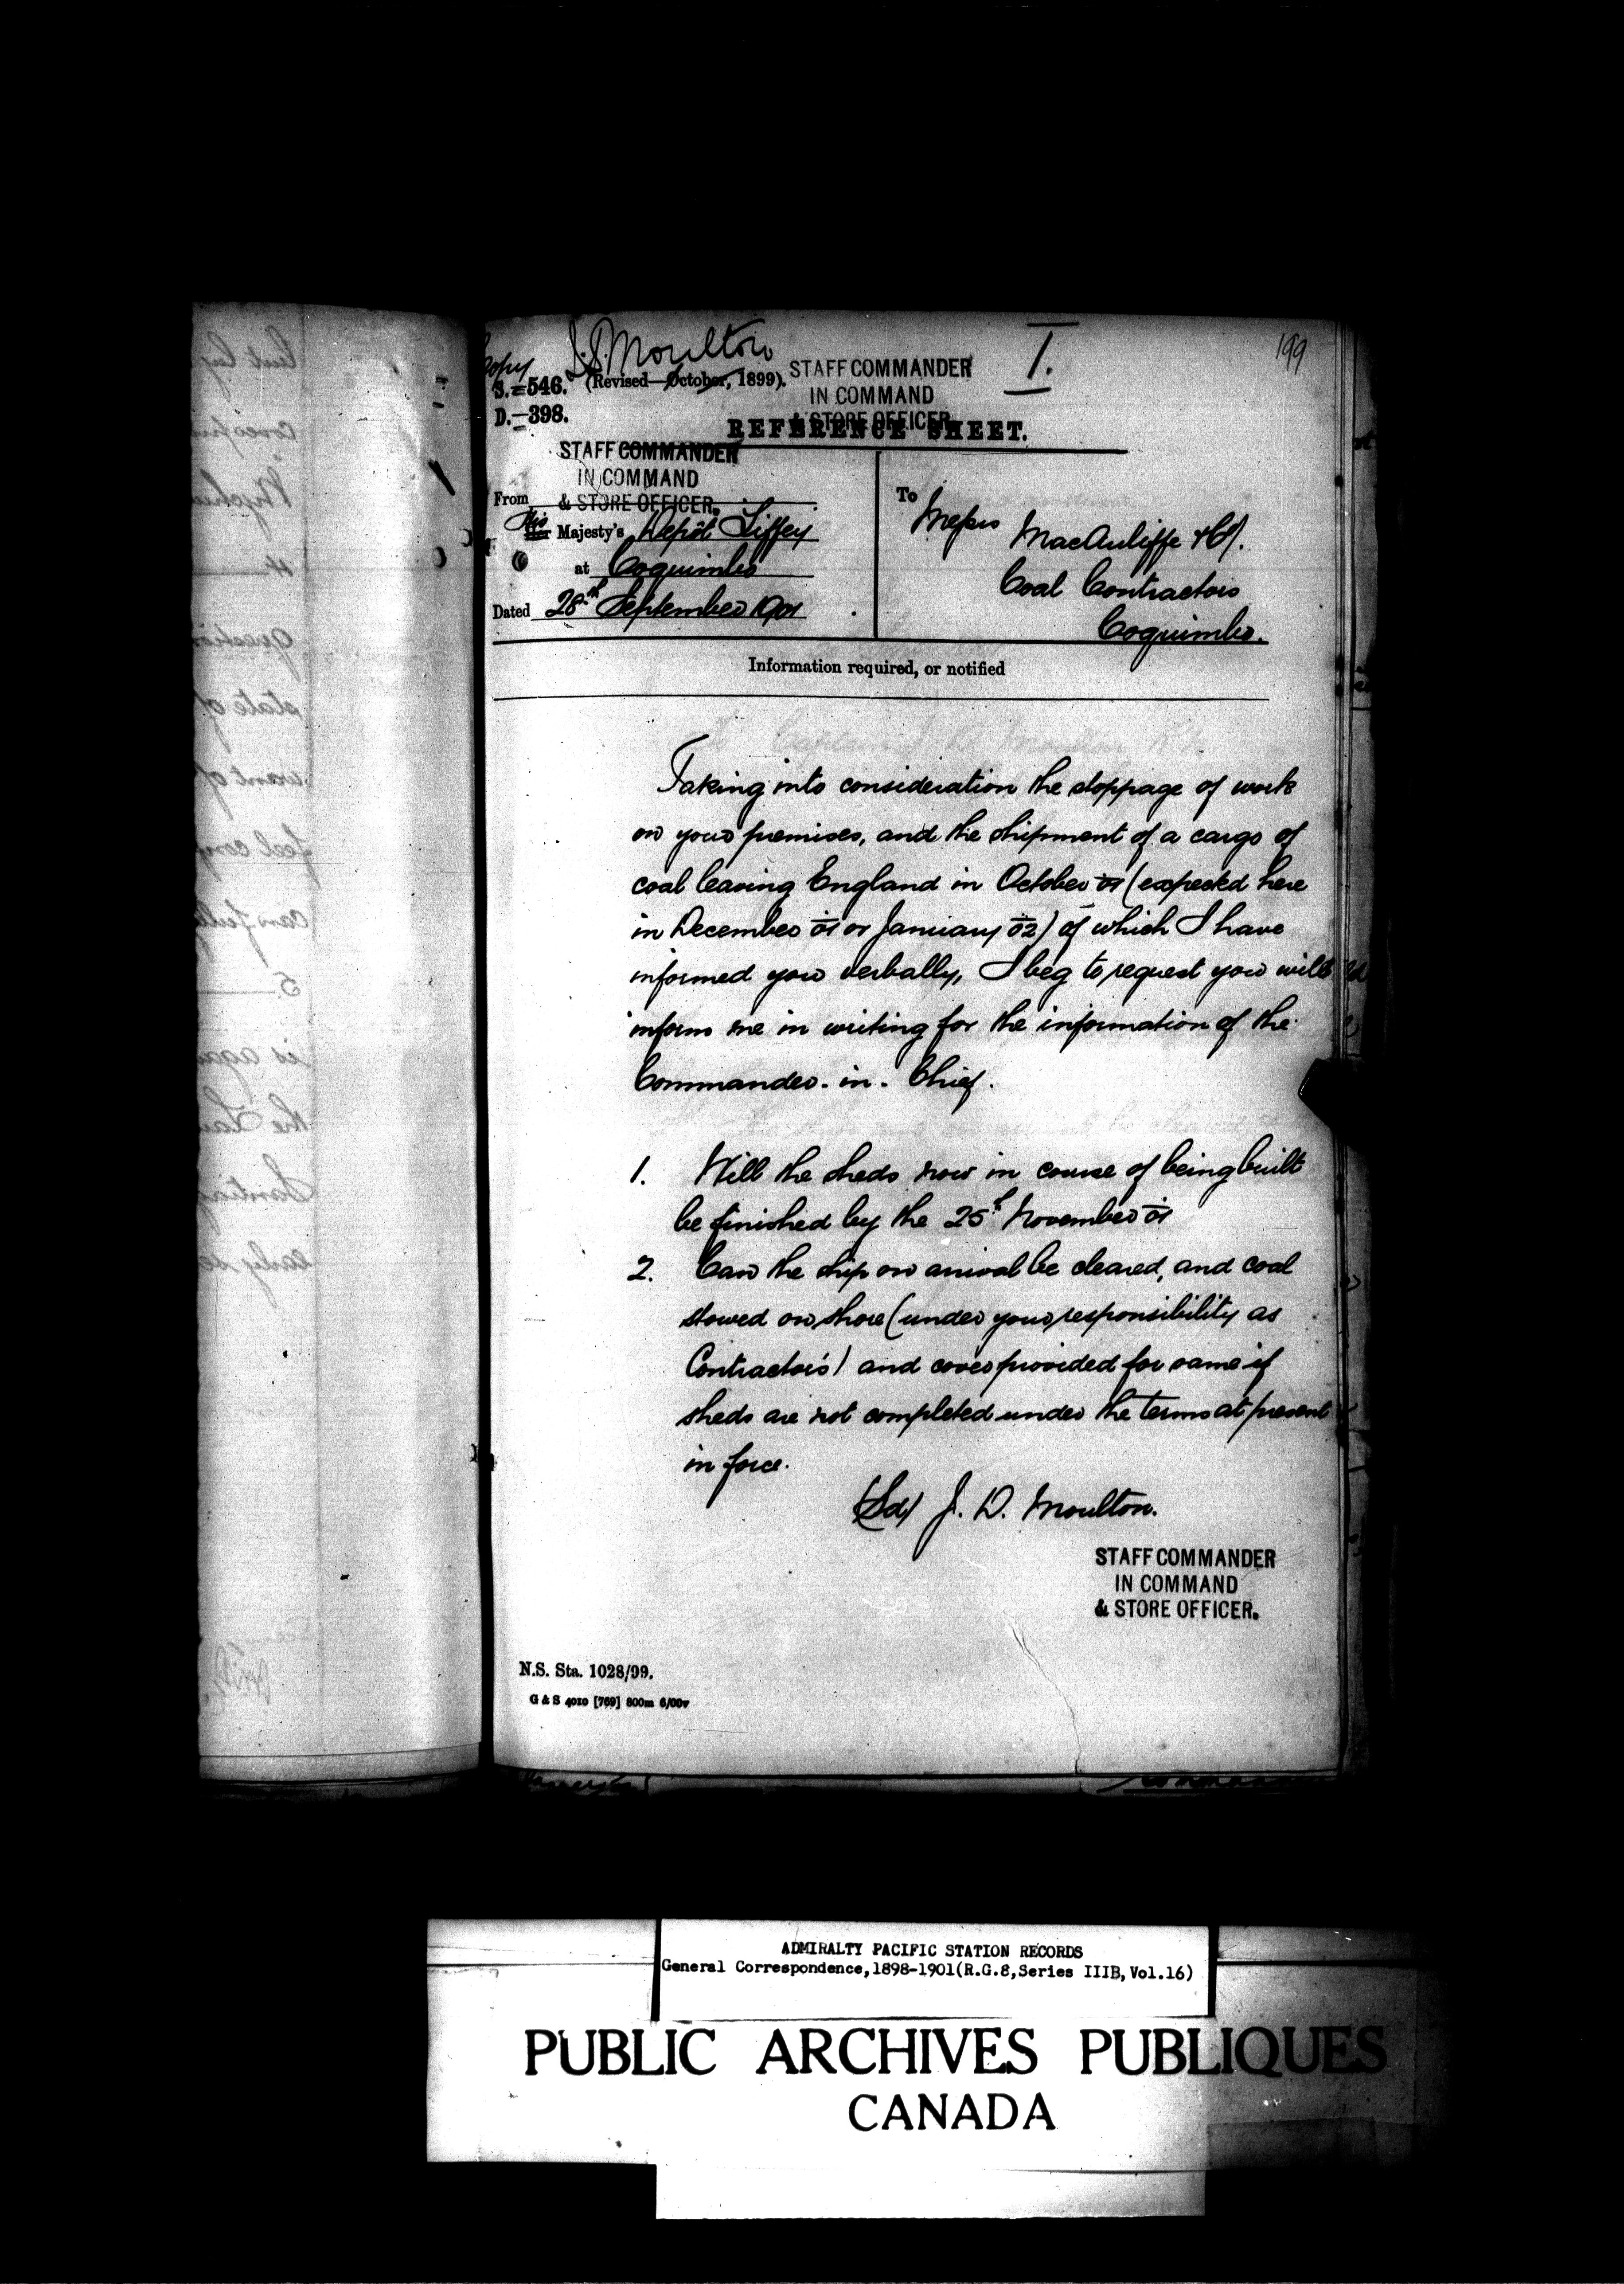 Copy J.D. Moulton
I.
199
S.—546. (Revised—October, 1899).
STAFF COMMANDER
IN COMMAND
& STORE OFFICER.
D.—398.
REFERENCE SHEET.
STAFF COMMANDER
IN COMMAND
& STORE OFFICER.
From
His
Her Majesty's Depôt Liffey
at Coquimbo
Dated 28th September 1901
To
Messrs
MacAuliffe & Co.
Coal Contractors
Coquimbo.
Information required, or notified
Taking into consideration the stoppage of work
on your premises, and the shipment of a cargo of
coal leaving England in October 01 (expected here
in December 01 or January 02) of which I have
informed you verbally, I beg to request you will
inform me in writing for the information of the
Commander-in-Chief.
1. Will the sheds now in course of being built
be finished by the 25th November 01
2. Can the ship on arrival be cleared, and coal
stowed on shore (under your responsibility as
Contractors) and cover provided for same if
sheds are not completed under the terms at present
in force.
(Sd) J. D. Moulton.
STAFF COMMANDER
IN COMMAND
& STORE OFFICER.
N.S. Sta. 1028/99.
G & S 4010 [769] 800m 6/00v
ADMIRALTY PACIFIC STATION RECORDS
General Correspondence,1898-1901(R.G.8,Series IIIB,Vol.16)
PUBLIC ARCHIVES PUBLIQUES
CANADA